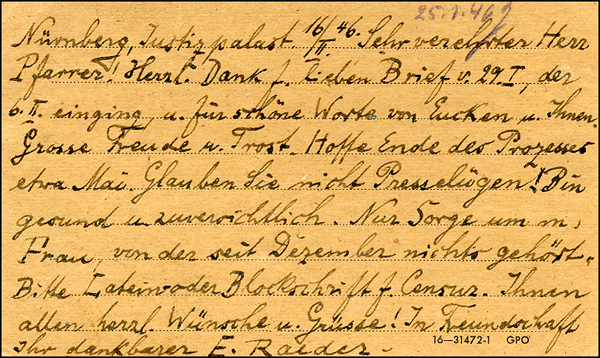 25.1.46
Nürnberg, Justizpalast 16/II. 46. Sehr verehrter Herr
Pfarrer! Herzl. Dank f. lieben Brief v. 29.I, der
6.II. einging, u. für schöne Worte von Eucken u. Ihnen.
Grosse Freude u. Trost. Hoffe Ende des Prozesses
etwa Mai. Glauben Sie nicht Presselügen! Bin
gesund u. zuversichtlich. Nur Sorge um m.
Frau, von der seit Dezember nichts gehört.
Bitte Latein- oder Blockschrift f. Censur. Ihnen
allen herzl. Wünsche u. Grüsse! In Freundschaft
Ihr dankbarer E. Raeder.
16—31472-1 GPO